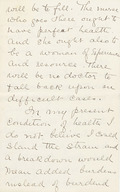 will be to fill. The nurse
who goes there ought to
have perfect health
and she ought also to
be a woman of
and resources. There
will be no doctor to
fall back upon in
difficult cases.
In my present
condition of health I
do not believe I could
stand the strain and
a breakdown would
mean added burdens
instead of burdens